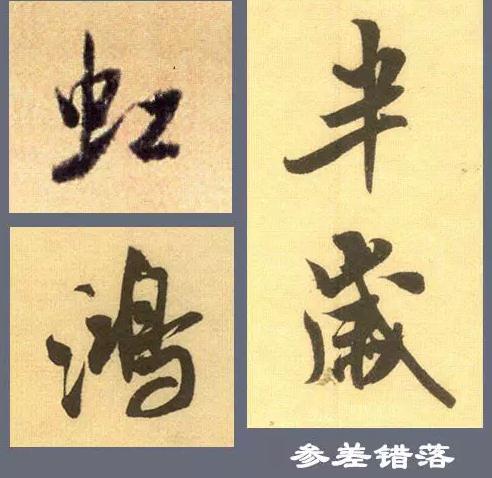 虹
鴻
半
歲
参差错落